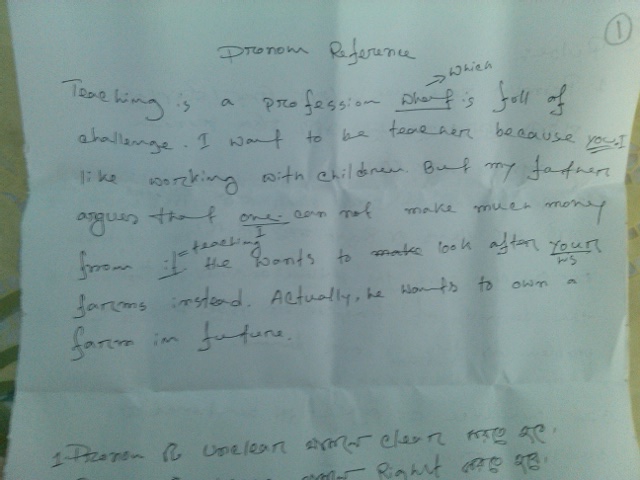 1
Pronom Reference
which
Teaching is a profession what is foll of
challenge. I want to be teacher because you. I
like working with children. But my farther
argues that one can not make much money
I
= teaching
from it the wants to make look after your
his
farms instead. Actually, he wants to own a
farm in future.
1. Pronom টি unclear থাকলে clear করতে হবে.
থাকলে Right করতে হবে.